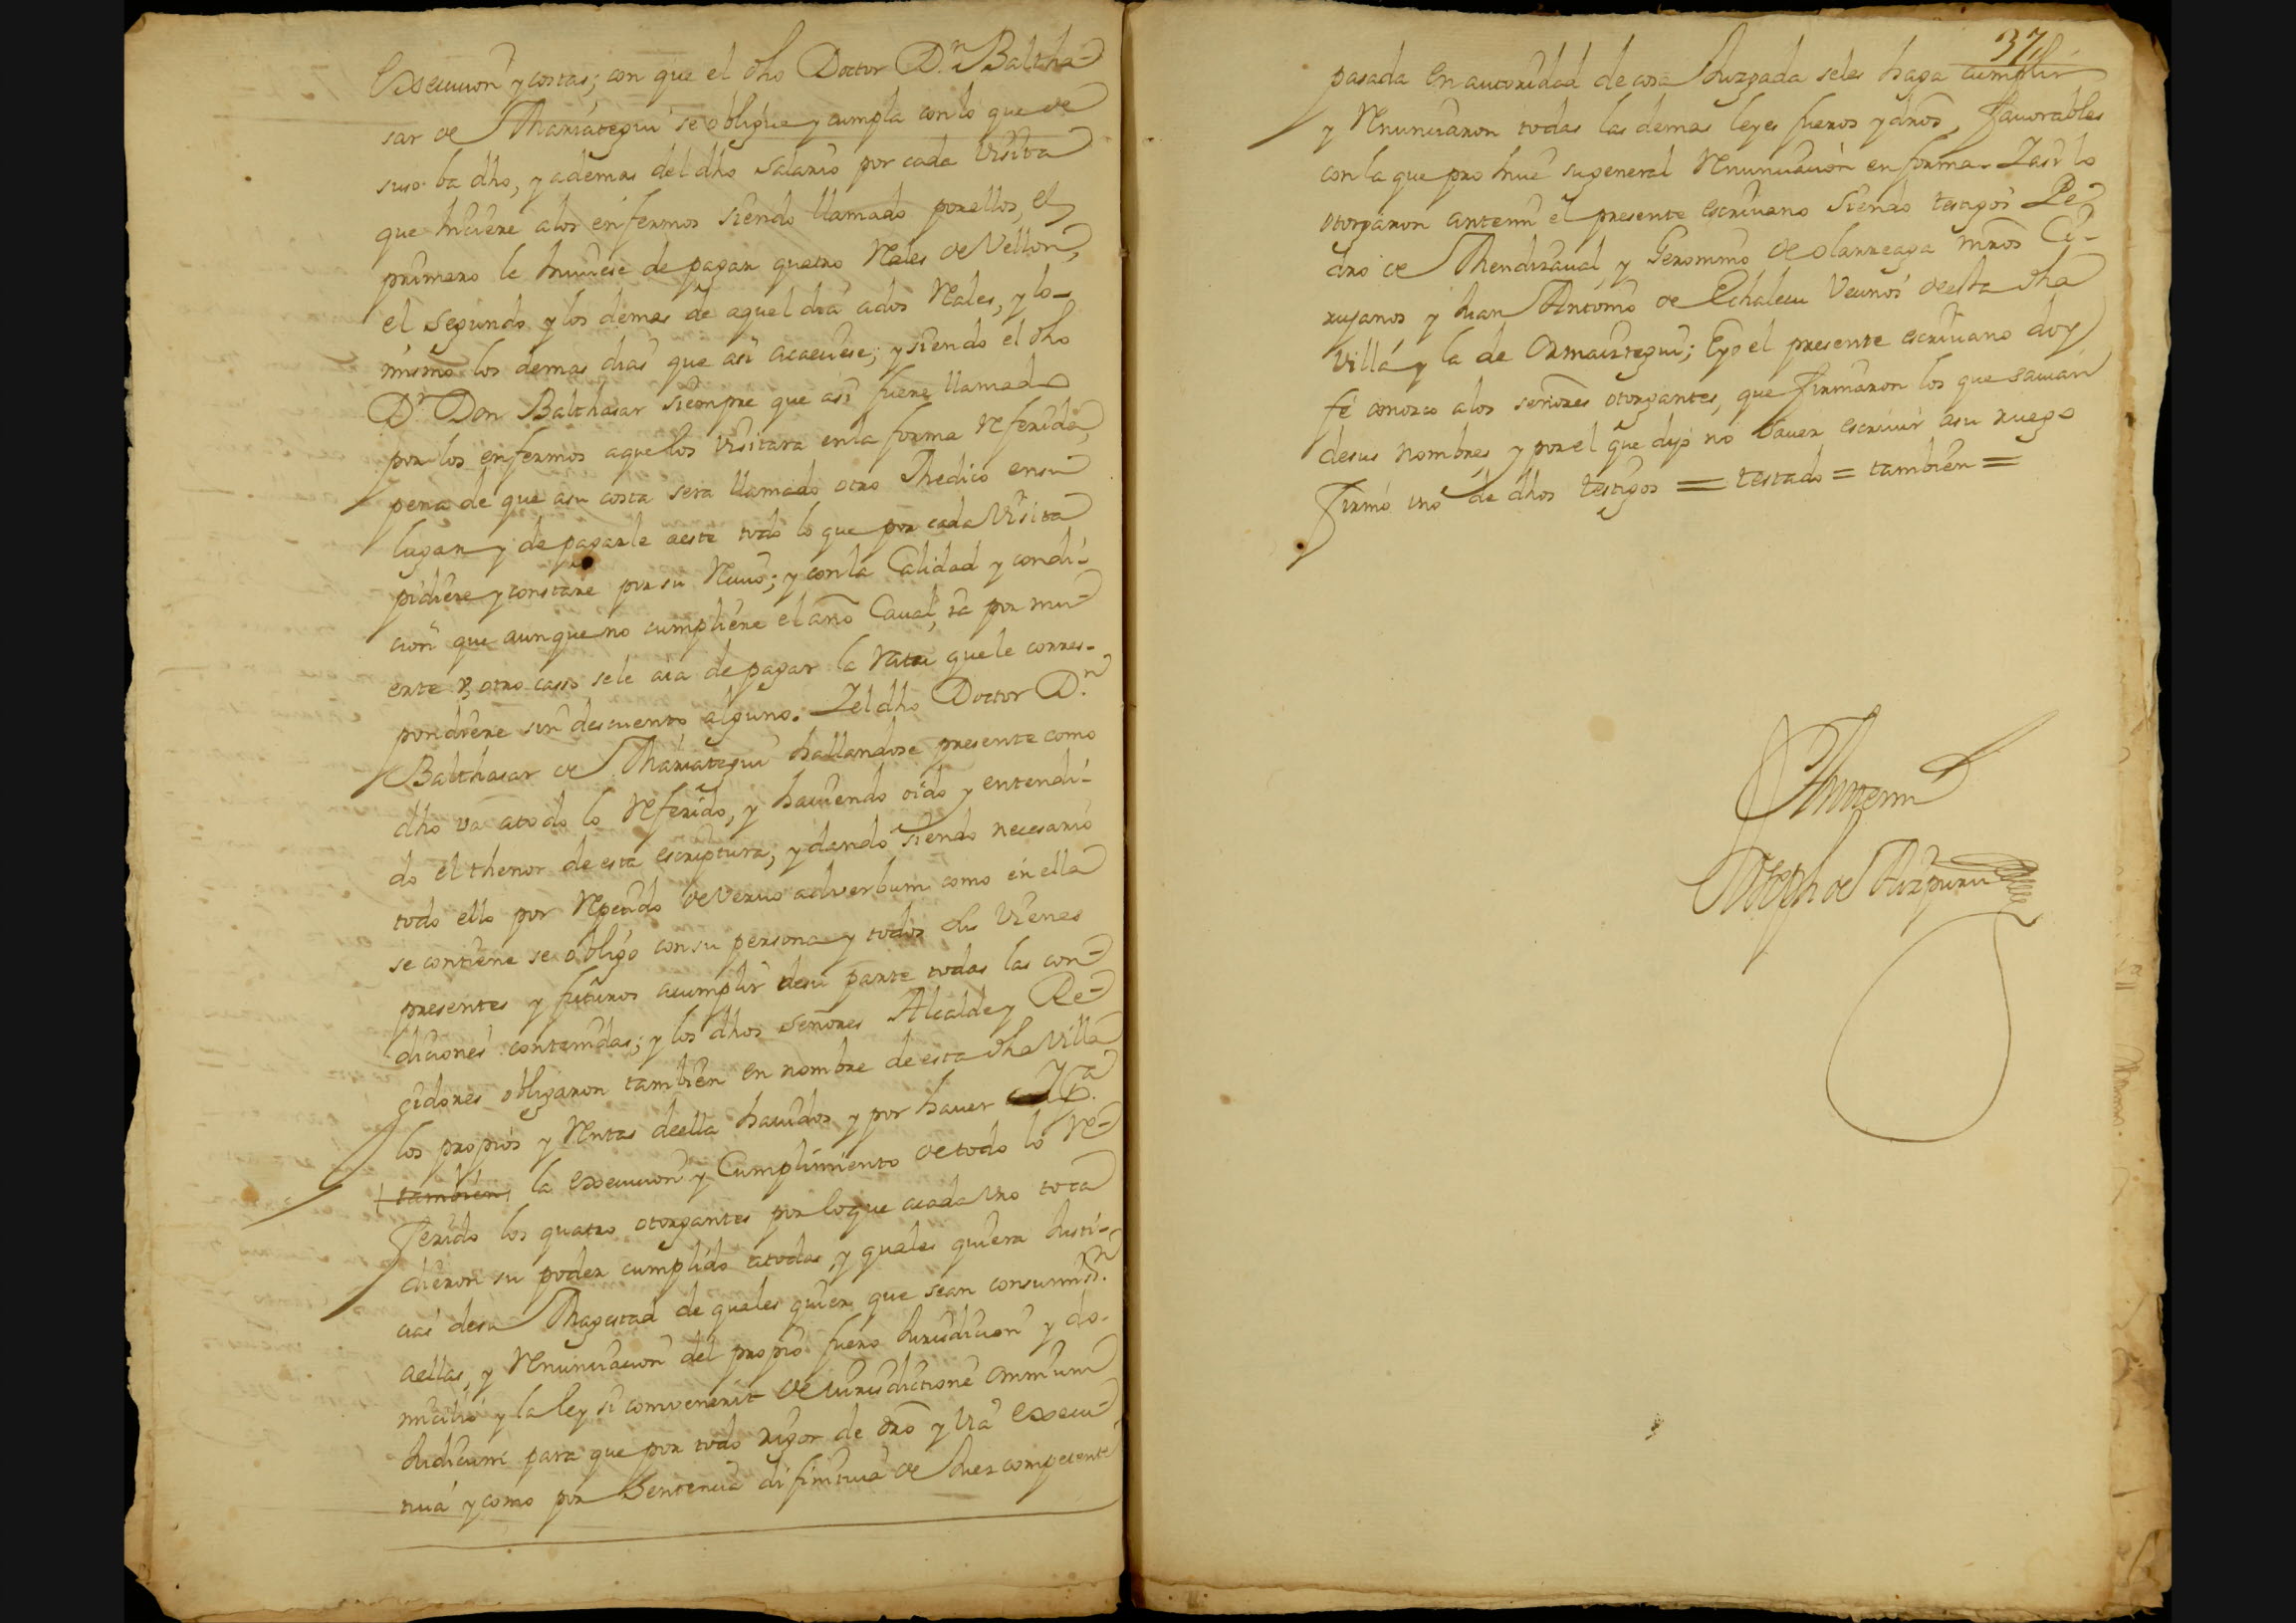 Execucion y costas; con que el dho Doctor D.n Baltha-
sar de Mariategui se obligue y cumpla con lo que de
suso ba dho, y ademas del dho salario por cada visita
que hiciere a los enfermos siendo llamado por ellos, el
primero le huviese de pagar quatro Reales de Vellon,
el segundo y los demas de aquel dia a dos Reales, y lo
mismo los demas dias que asi acaeciese; y siendo el dho
D.r Don Balthasar siempre que asi fuere llamado
por los enfermos aque los visitara en la forma Referida,
pena de que a su costa sera llamado otro Medico en su
lugar y de pagarle a este todo lo que por cada Visita
pidiere y constare por su Recivo; y con la Calidad y condi-
cion que aunque no cumpliere el año Caual, ya por mu-
erte u otro casso se le aia de pagar la Rata que le corres-
pondiere sin descuento alguno. Y el dho Doctor D.n
Balthasar de Mariategui hallandose presente como
dho va a todo lo Referido, y haviendo oido y entendi-
do el thenor de esta escriptura, y dando siendo necesario
todo ello por Repetido de Vervo adverbum como en ella
se contiene se obligó con su persona y todos sus Vienes
presentes y futuros a cumplir desu parte todas las con-
diciones contenidas; y los dhos señores Alcalde y Re-
gidores obligaron tambien en nombre de esta dha Villa
los propios y Rentas de ella havidos y por haver Y P.a
tambien la execucion y Cumplimiento de todo lo Re-
ferido los quatro otorgantes por lo que a cada Vno toca
dieron su poder cumplido a todas y quales quiera Justi-
cias desu Magestad de quales quier que sean con sumiss.n
a ellas, y Renunciacion del propio fuero Jurisdicion y do-
micilio y la ley si convenerit de Jurisdictione omnium
Judicum para que por todo rigor de dro y via execu-
tiva y como por Sentencia difinitiva de Juez competente
37
pasada en autoridad de cosa Juzgada se les haga cumplir
y Renunciaron todas las demas leyes fueros y dros, favorables
con la que prohive su general Renunciacion en forma. Y asi lo
otorgaron ante mi el presente escrivano siendo testigos Pe-
dro de Mendizaual, y Geronimo de olarreaga mros Ci-
rujanos y Juan Antonio de Echalecu Vecinos de esta dha
Villa y la de Ormaiztegui; E yo el presente escrivano doy
fé conozco a los señores otorgantes, que firmaron los que savian
de sus nombres, y por el que dijo no saver escrivir a su ruego
firmó vno de dhos testigos = testado = tambien =
Ante mi
Joseph de Aizpuru